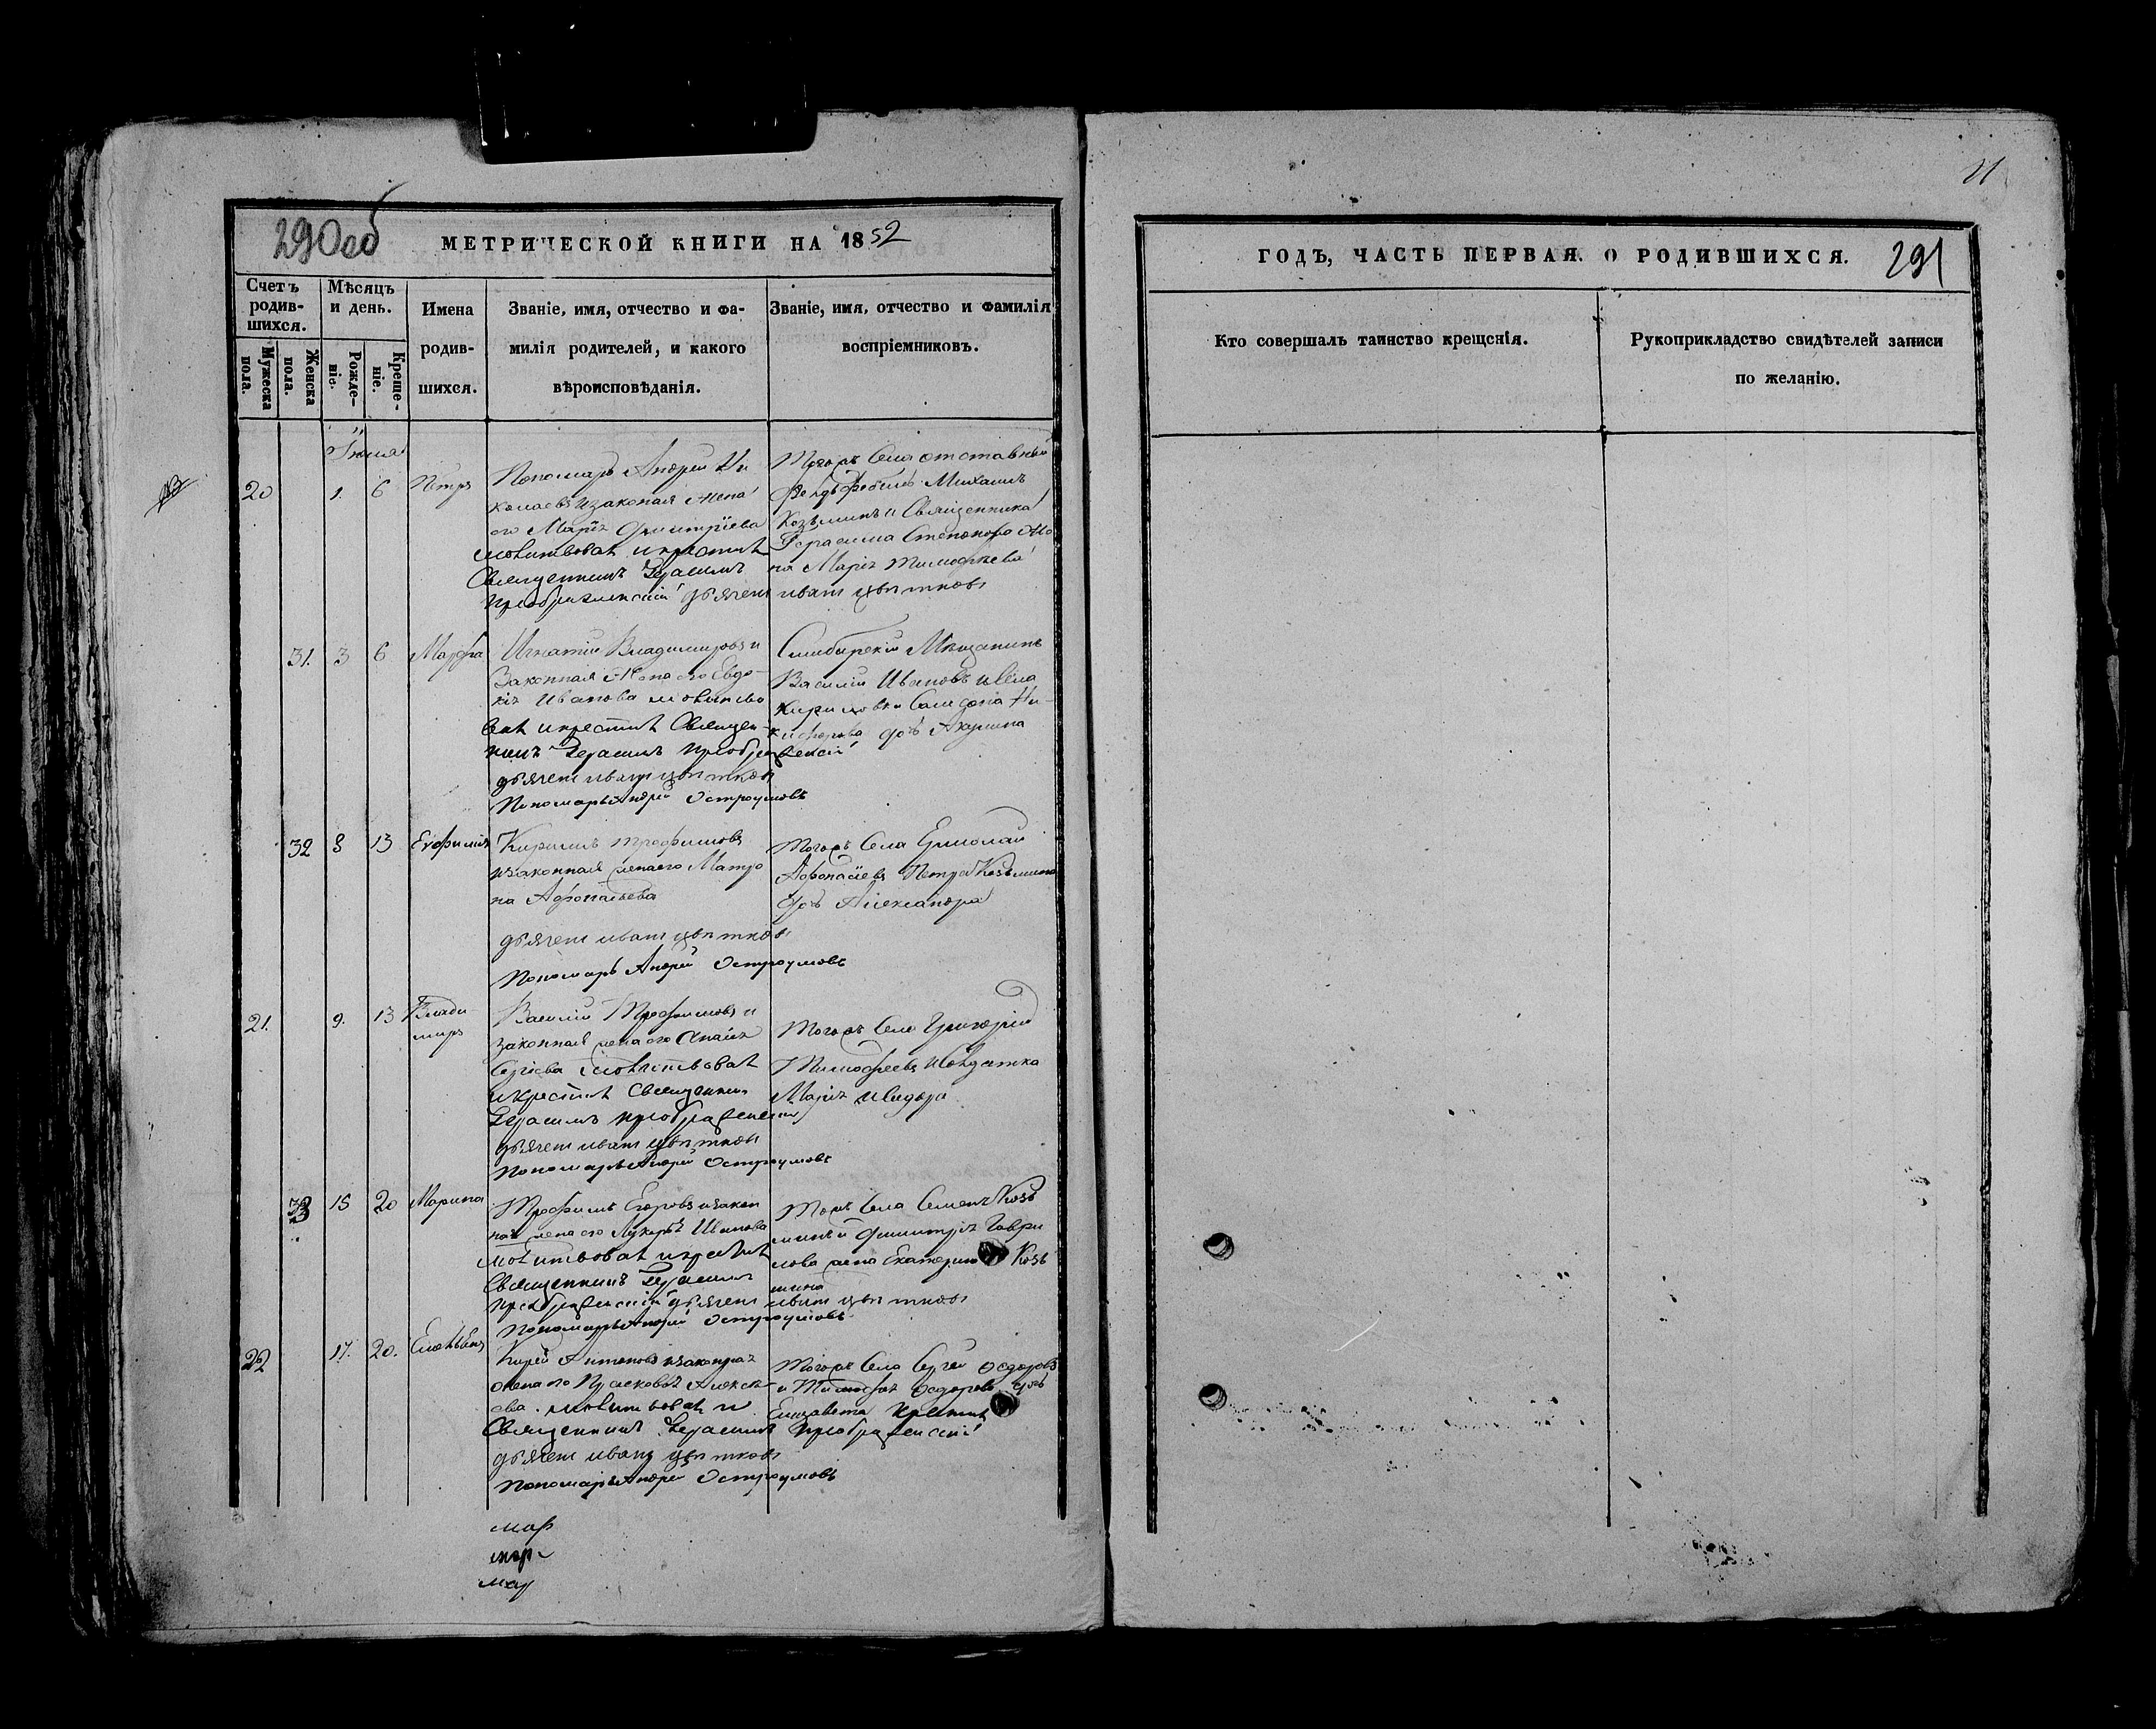 290об МЕТРИЧЕСКОЙ КНИГИ НА 1852
Счетъ родив-шихся.
Мужеска пола.
Женска пола.
Мѣсяцъ и день.
Рожде-ніе.
Креще-ніе.
Имена
родив-
шихся.
Званіе, имя, отчество и фа-
милія родителей, и какого
вѣроисповѣданія.
Званіе, имя, отчество и фамилія
воспріемниковъ.
Іюня
20 1. 6 Петръ
Пономарь Андрей Ни
колаевъ и законая жена
его Марія Димитріева
молитвовалъ и крестилъ
Священникъ Герасимъ
Преображенскій дьячекъ иванъ цвѣтковъ
Тогожъ Села отставный
фельдфебель Михаилъ
Козьминъ и Священника
Герасима Степанова же
на Марія Тимофеева
31. 3 6 Марфа
Игнатій Владимировъ и
Законная жена его Евдо-
кія Иванова молитво
валъ и крестилъ Священ-
никъ Герасимъ Преображенскій
дьячекъ иванъ цвѣтковъ
Пономарь Андрей Остроумовъ
Симбирскій Мещанинъ
Василій Ивановъ и Села
дочь Акулина
32 8 13 Евфимія
Кирилъ Трофимовъ
и законная жена его Матро
на Афонасьева
дьячекъ иванъ цвѣтковъ
Пономарь Андрей Остроумовъ
Тогожъ Села Ермолай
Афонасіевъ Петра Козьмина
дочь Александра
21. 9. 13 Влади-
миръ
Василій Трофимовъ и
законная жена его
Сергіева молитвовалъ
и крестилъ Священникъ
Герасимъ Преображенскій
дьячекъ иванъ цвѣтковъ
Пономарь Андрей Остроумовъ
Тогожъ Села Григорій
Тимофеевъ и Солдатка
Марія
33 15 20 Марина
Трофимъ Егоровъ и закон
ная жена его Лукерья Иванова
молитвовалъ и крестилъ
Священникъ Герасимъ
Преображенскій дьячекъ иванъ цвѣтковъ
Пономарь Андрей Остроумовъ
Тогожъ Села Семенъ Козь
минъ и Димитрія Гаври
лова жена Екатерина Козь
мина
22 17. 20.
Антоновъ и законная
жена его Прасковья Алексѣ-
ева. молитвовалъ и
Священникъ Герасимъ Преображенскій
дьячекъ иванъ цвѣтковъ
Пономарь Андрей Остроумовъ
Тогожъ Села Сергей Федоровъ
и Тимофея Федорова дочь
Елизавета крестилъ
мар
мар
мар
21
ГОДЪ, ЧАСТЬ ПЕРВАЯ. О РОДИВШИХСЯ. 291
Кто совершалъ таинство крещенія.
Рукоприкладство свидѣтелей записи
по желанію.